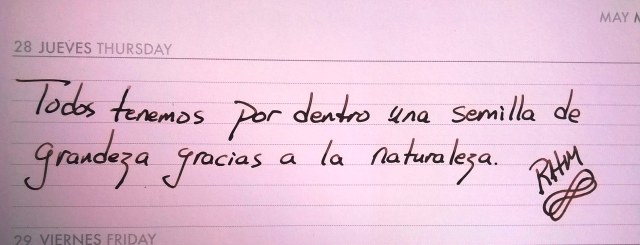 MAY
28 JUEVES THURSDAY
Todos tenemos por dentro una semilla de
grandeza gracias a la naturaleza.
RHM
29 VIERNES FRIDAY